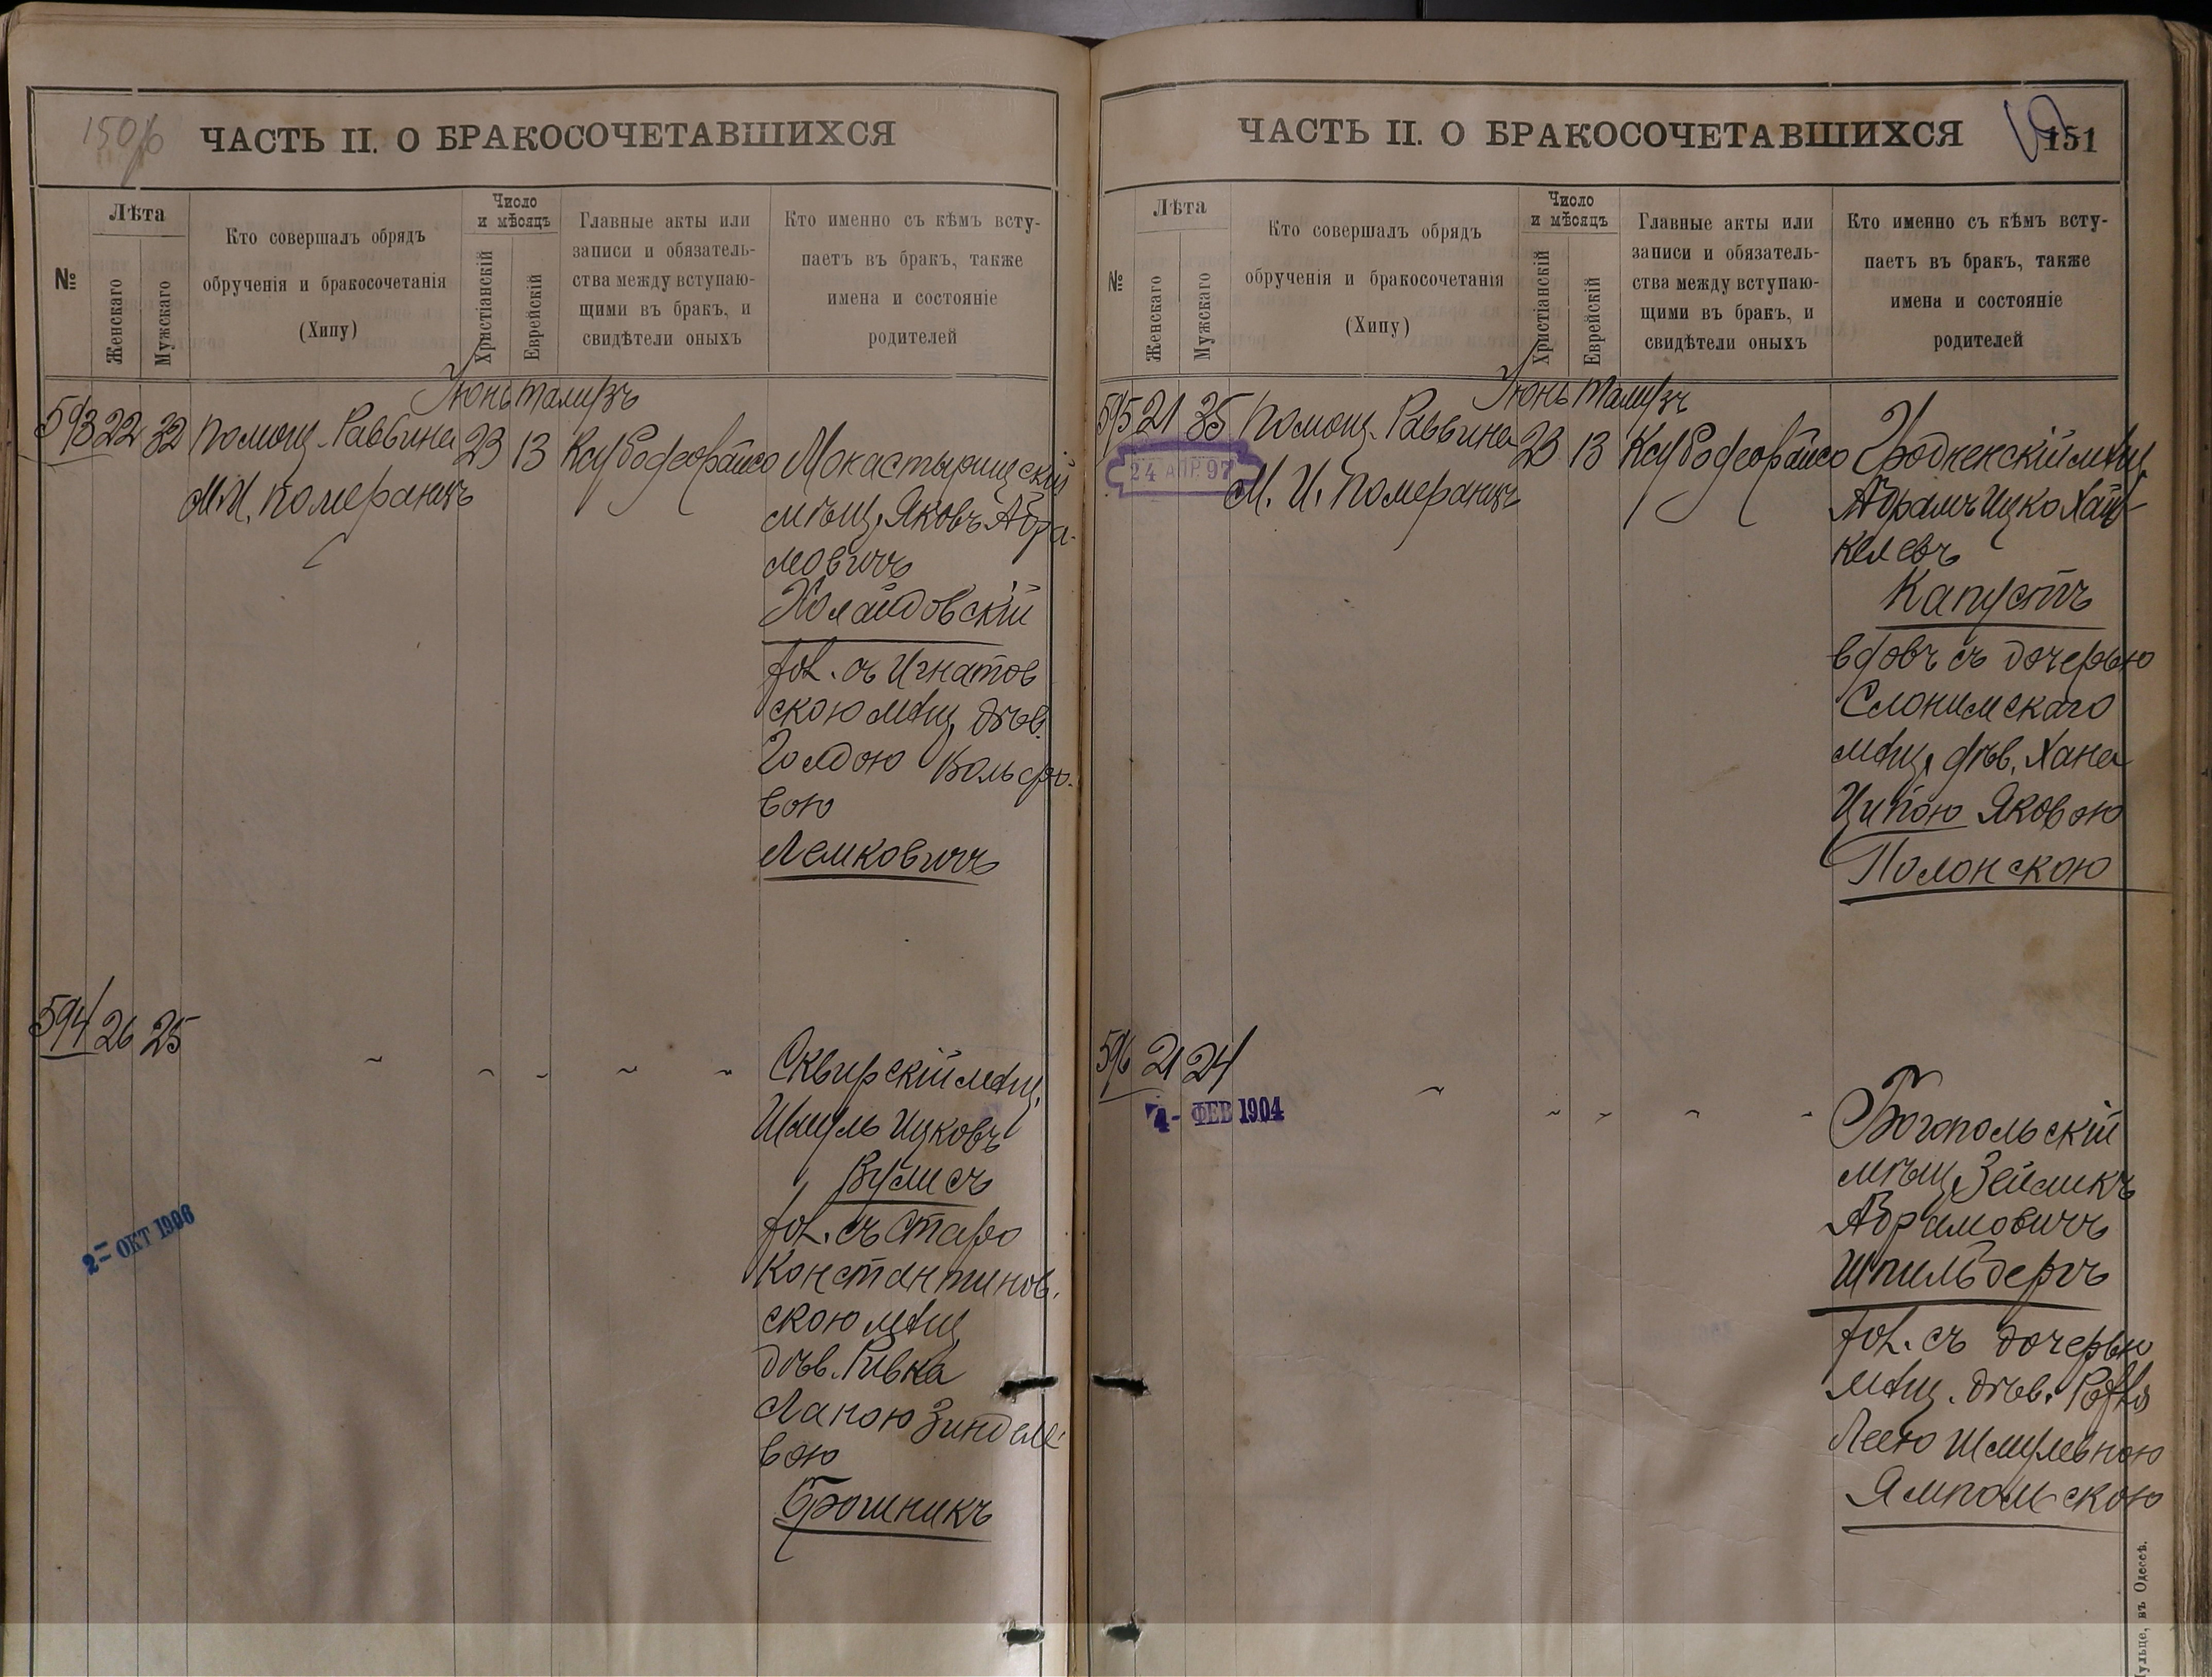 150об
ЧАСТЬ II. О БРАКОСОЧЕТАВШИХСЯ
№
Лѣта
Женскаго
Мужскаго
Кто совершалъ обрядъ
обрученія и бракосочетанія
(Хипу)
Число
и мѣсяцъ
Христіанскій
Еврейскій
Главные акты или
записи и обязатель-
ства между вступаю-
щими въ бракъ, и
свидѣтели оныхъ
Кто именно съ кѣмъ всту-
паетъ въ бракъ, также
имена и состояніе
родителей
Іюнь Тамузъ
593 22 32 Помощ. Раввина 23 13
М. И. Померанцъ
Монастырищскій
мѣщ. Яковъ Абра-
мовичъ
Холайдовскій
хол. съ Игнатов
скою мѣщ. дѣв.
Голдою Вольфо-
вою
Лемковичъ
594 26 25
Сквирскій мѣщ.
Шмуль Ицковъ
Вулисъ
хол. съ Старо
Константинов.
скою мѣщ
дѣв. Ривка
Ланою Зинделе
вою
Брошникъ
2 - ОКТ 1906
ЧАСТЬ II. О БРАКОСОЧЕТАВШИХСЯ
151
№
Лѣта
Женскаго
Мужскаго
Кто совершалъ обрядъ
обрученія и бракосочетанія
(Хипу)
Число
и мѣсяцъ
Христіанскій
Еврейскій
Главные акты или
записи и обязатель-
ства между вступаю-
щими въ бракъ, и
свидѣтели оныхъ
Кто именно съ кѣмъ всту-
паетъ въ бракъ, также
имена и состояніе
родителей
Іюнь Тамузъ
595 21 35 Помощ. Раввина 23 13
24 АПР. 97
М. И. Померанцъ
Гродненскій мѣщ
Абрамъ Ицко Хай-
келевъ
Капустъ
вдовъ съ дочерью
Слонимскаго
мѣщ. дѣв. Хана
Ципою Яковою
Полонскою
596 21 24
4 - ФЕВ 1904
Богопольскій
мѣщ. Зейликъ
Абрамовичъ
Шпильбергъ
хол. съ дочерью
мѣщ. дѣв.
Леею Шмулевною
Ямпольскою
въ Одессѣ.